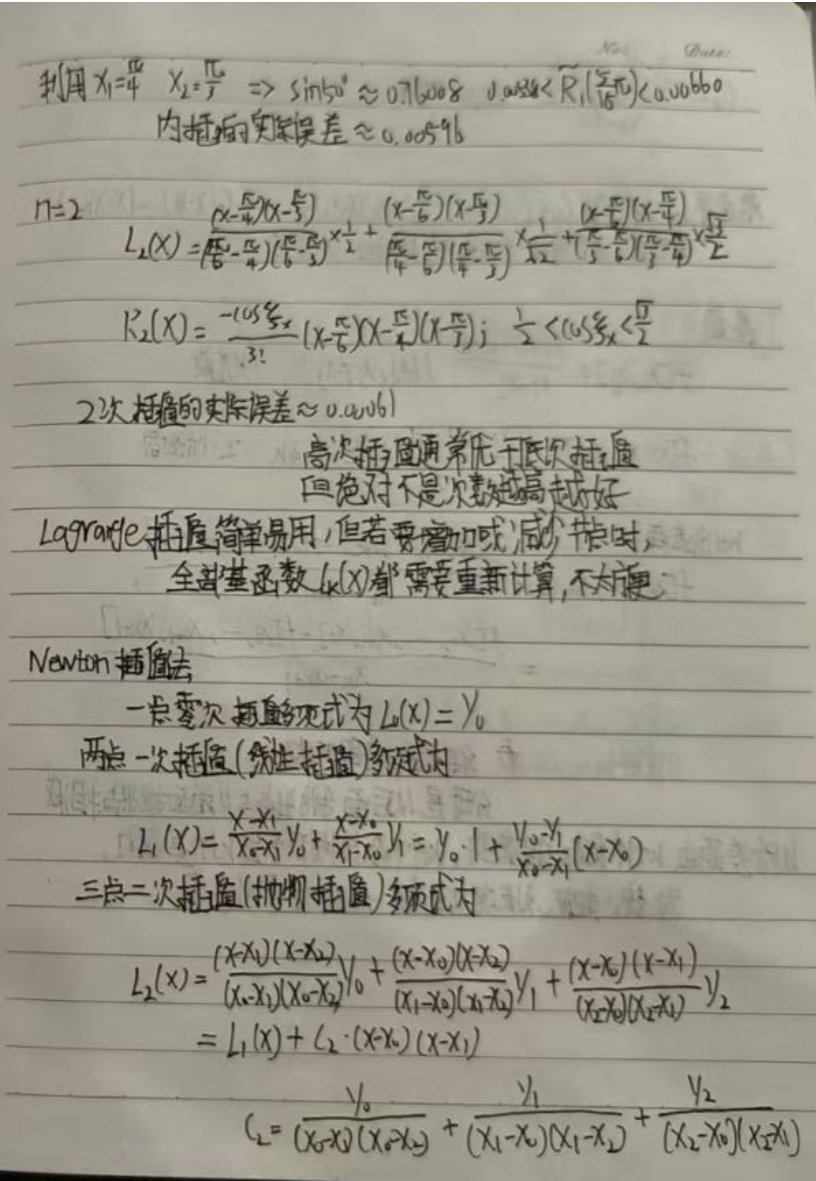 No. Date:
利用 x₁=π/4 x₂=π/3 => sin50° ≈ 0.76008 0.00538< R̃₁(5/18 π)<0.00660
内插的实际误差 ≈ 0.00596
n=2
L₂(x) = (x-π/4)(x-π/3)/((π/6-π/4)(π/6-π/3)) × 1/2 + (x-π/6)(x-π/3)/((π/4-π/6)(π/4-π/3)) × 1/√2 + (x-π/6)(x-π/4)/((π/3-π/6)(π/3-π/4)) × √3/2
R₂(x) = -cosξₓ/3! (x-π/6)(x-π/4)(x-π/3); 1/2 <cosξₓ< √3/2
2次插值的实际误差 ≈ 0.00061
高次插值通常优于低次插值
但绝对不是次数越高越好
Lagrange插值简单易用,但若要增加或减少节点时,
全部基函数 lₖ(x)都需要重新计算,不太方便
Newton插值法
一点零次插值多项式为 L₀(x) = y₀
两点一次插值(线性插值)多项式为
L₁(x) = (x-x₁)/(x₀-x₁) y₀ + (x-x₀)/(x₁-x₀) y₁ = y₀·1 + (y₀-y₁)/(x₀-x₁) (x-x₀)
三点二次插值(抛物插值)多项式为
L₂(x) = (x-x₁)(x-x₂)/((x₀-x₁)(x₀-x₂)) y₀ + (x-x₀)(x-x₂)/((x₁-x₀)(x₁-x₂)) y₁ + (x-x₀)(x-x₁)/((x₂-x₀)(x₂-x₁)) y₂
= L₁(x) + C₂·(x-x₀)(x-x₁)
C₂ = y₀/((x₀-x₁)(x₀-x₂)) + y₁/((x₁-x₀)(x₁-x₂)) + y₂/((x₂-x₀)(x₂-x₁))